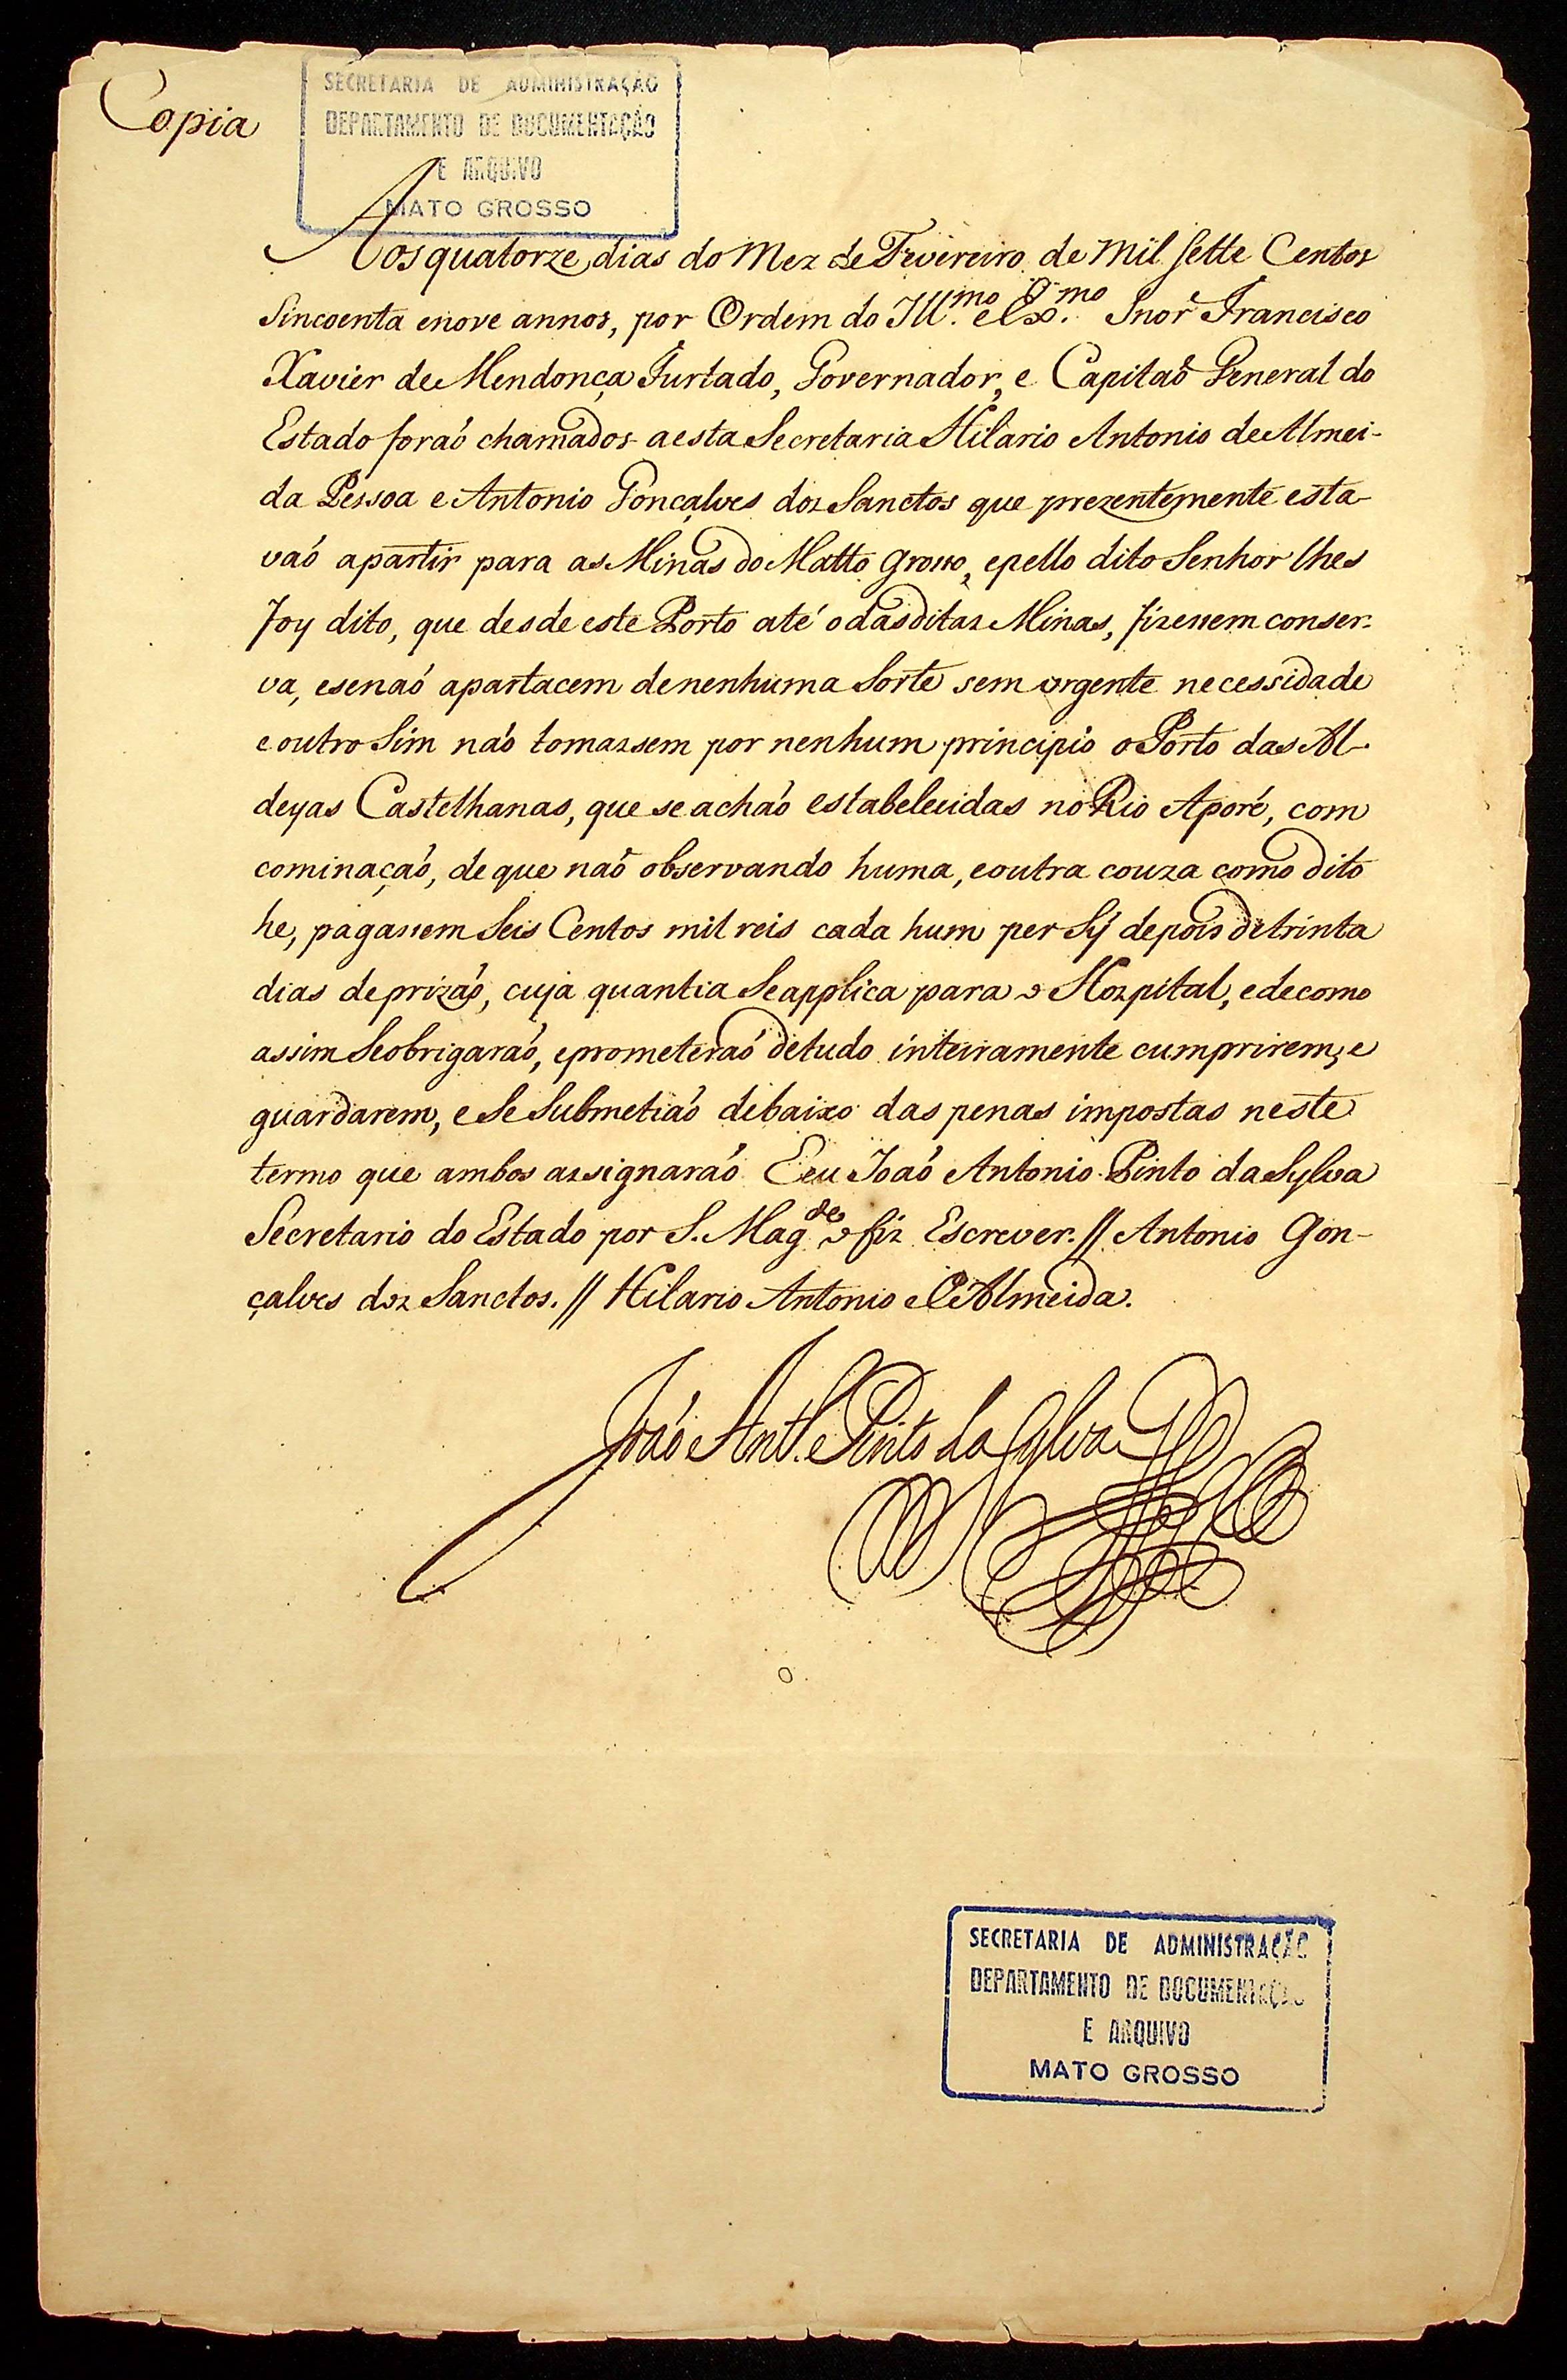 Copia
SECRETARIA DE ADMINISTRAÇÃO
DEPARTAMENTO DE DOCUMENTAÇÃO
E ARQUIVO
MATO GROSSO
Aos quatorze dias do Mez de Fevereiro de mil sette Centos
Sincoenta enove annos, por Ordem do Ill.mo e Ex.mo Snor Francisco
Xavier de Mendonça Furtado, Governador, e Capitaõ General do
Estado foraó chamados aesta Secretaria Hilario Antonio de Almei-
da Pessoa e Antonio Gonçalves dos Sanctos que prezentemente esta-
vaó apartir para as Minas do Matto Grosso, epello dito Senhor lhes
foy dito, que desde este Porto até o das ditas Minas, fizessem conser-
va, esenaó apartacem denenhuma Sorte sem urgente necessidade
eoutro Sim naó tomassem por nenhum principio o Porto das Al-
deyas Castelhanas, que se achaó estabelecidas no Rio Aporé, com
cominaçaó, de que naó observando huma, eoutra couza como dito
he, pagassem Seis Centos mil reis cada hum per Sÿ depois detrinta
dias deprizaó, cuja quantia Seapplica para o Hospital, edecomo
assim Seobrigaraó, eprometeraó detudo inteiramente cumprirem, e
guardarem, e Se Submetiaó debaixo das penas impostas neste
termo que ambos assignaraó Eeu Joaó Antonio Pinto da Sylva
Secretario do Estado por S. Mag.de o fiz Escrever. // Antonio Gon-
çalves dos Sanctos. // Hilario Antonio de Almeida.
Joaó Ant.o Pinto da Sylva
SECRETARIA DE ADMINISTRAÇÃO
DEPARTAMENTO DE DOCUMENTAÇÃO
E ARQUIVO
MATO GROSSO